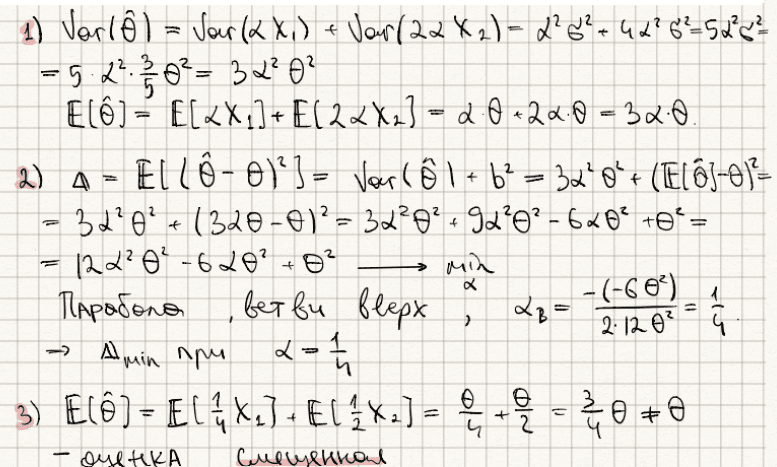 1) Var(θ̂) = Var(αX₁) + Var(2αX₂) = α²σ² + 4α²σ² = 5α²σ² =
= 5·α²·3/5 θ² = 3α²θ²
E[θ̂] = E[αX₁] + E[2αX₂] = α·θ + 2α·θ = 3α·θ.
2) Δ = E[(θ̂ - θ)²] = Var(θ̂) + b² = 3α²θ² + (E[θ̂]-θ)² =
= 3α²θ² + (3αθ - θ)² = 3α²θ² + 9α²θ² - 6αθ² + θ² =
= 12α²θ² - 6αθ² + θ² ⟶ min α
Парабола, ветви вверх, α_В = -(-6θ²)/(2·12θ²) = 1/4.
→ Δmin при α = 1/4
3) E[θ̂] = E[1/4 X₁] + E[1/2 X₂] = θ/4 + θ/2 = 3/4 θ ≠ θ
- оценка смещенная